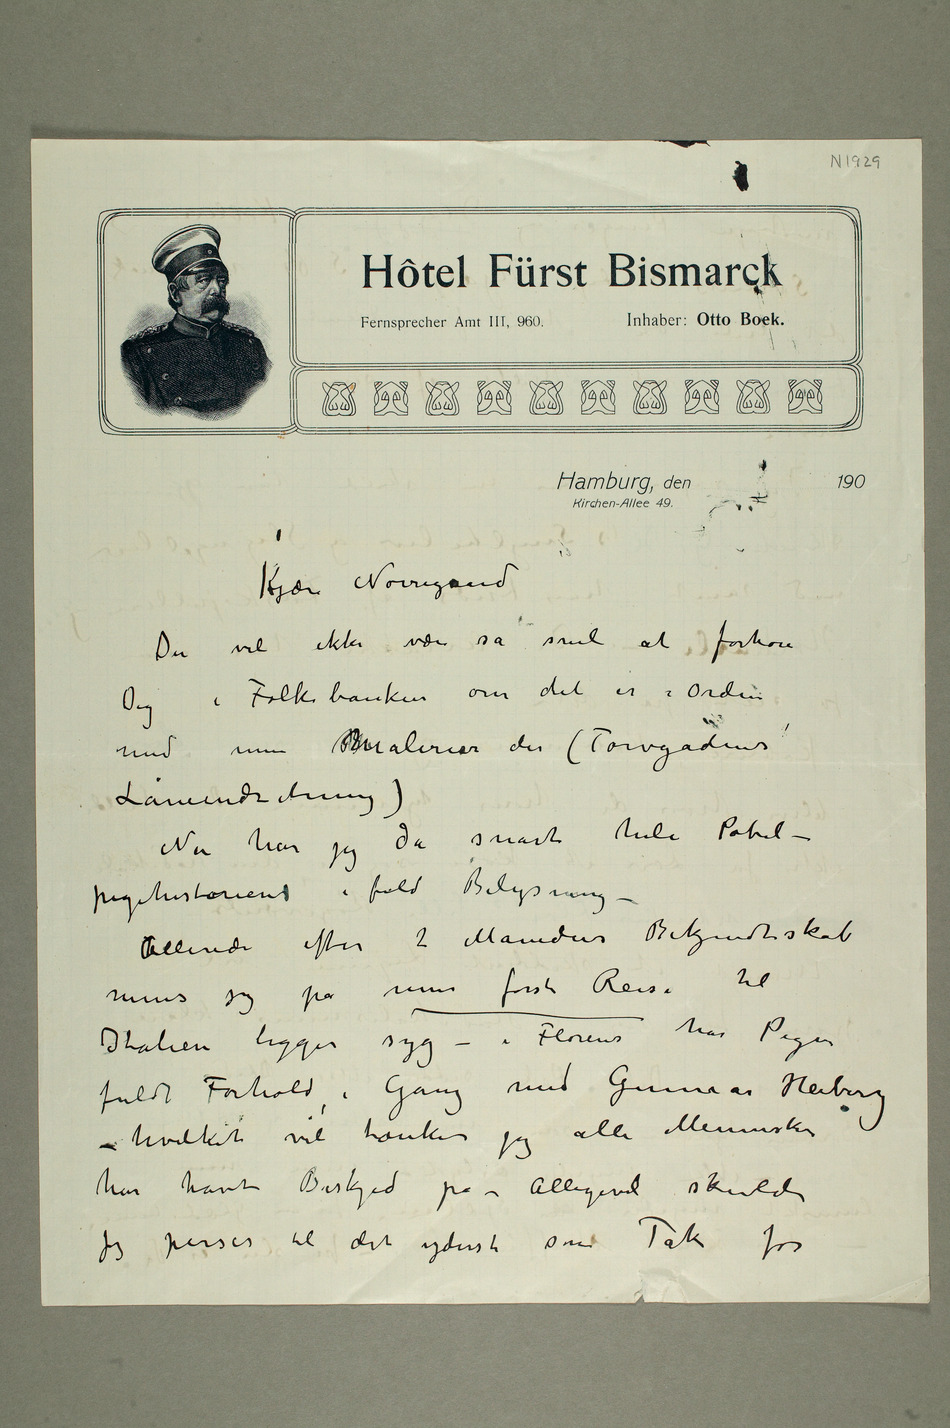 N 1929
Hôtel Fürst Bismarck
Fernsprecher Amt III, 960. Inhaber: Otto Boek.
Hamburg, den 190
Kirchen-Allee 49.
Kjære Nørregaard
Du vil ikke være så snil at forhøre
Dig i Folkebanken om det er i Orden
med mine Malerier der (Torvgadens
Låneindretning)
Nu har jeg da snart hele Pøbel–
pigehistorien i fuld Belysning –
Allerede efter 2 Måneders Bekjendtskab
mens jeg på min første Reise til
Italien ligger syg – i Florens har Pigen
fuldt Forhold, i Gang med Gunnar Heiberg
– hvilket vel tænker jeg alle Mennesker
har havt Beskjed på – Alligevel skulde
jeg perses til det yderste som Tak for